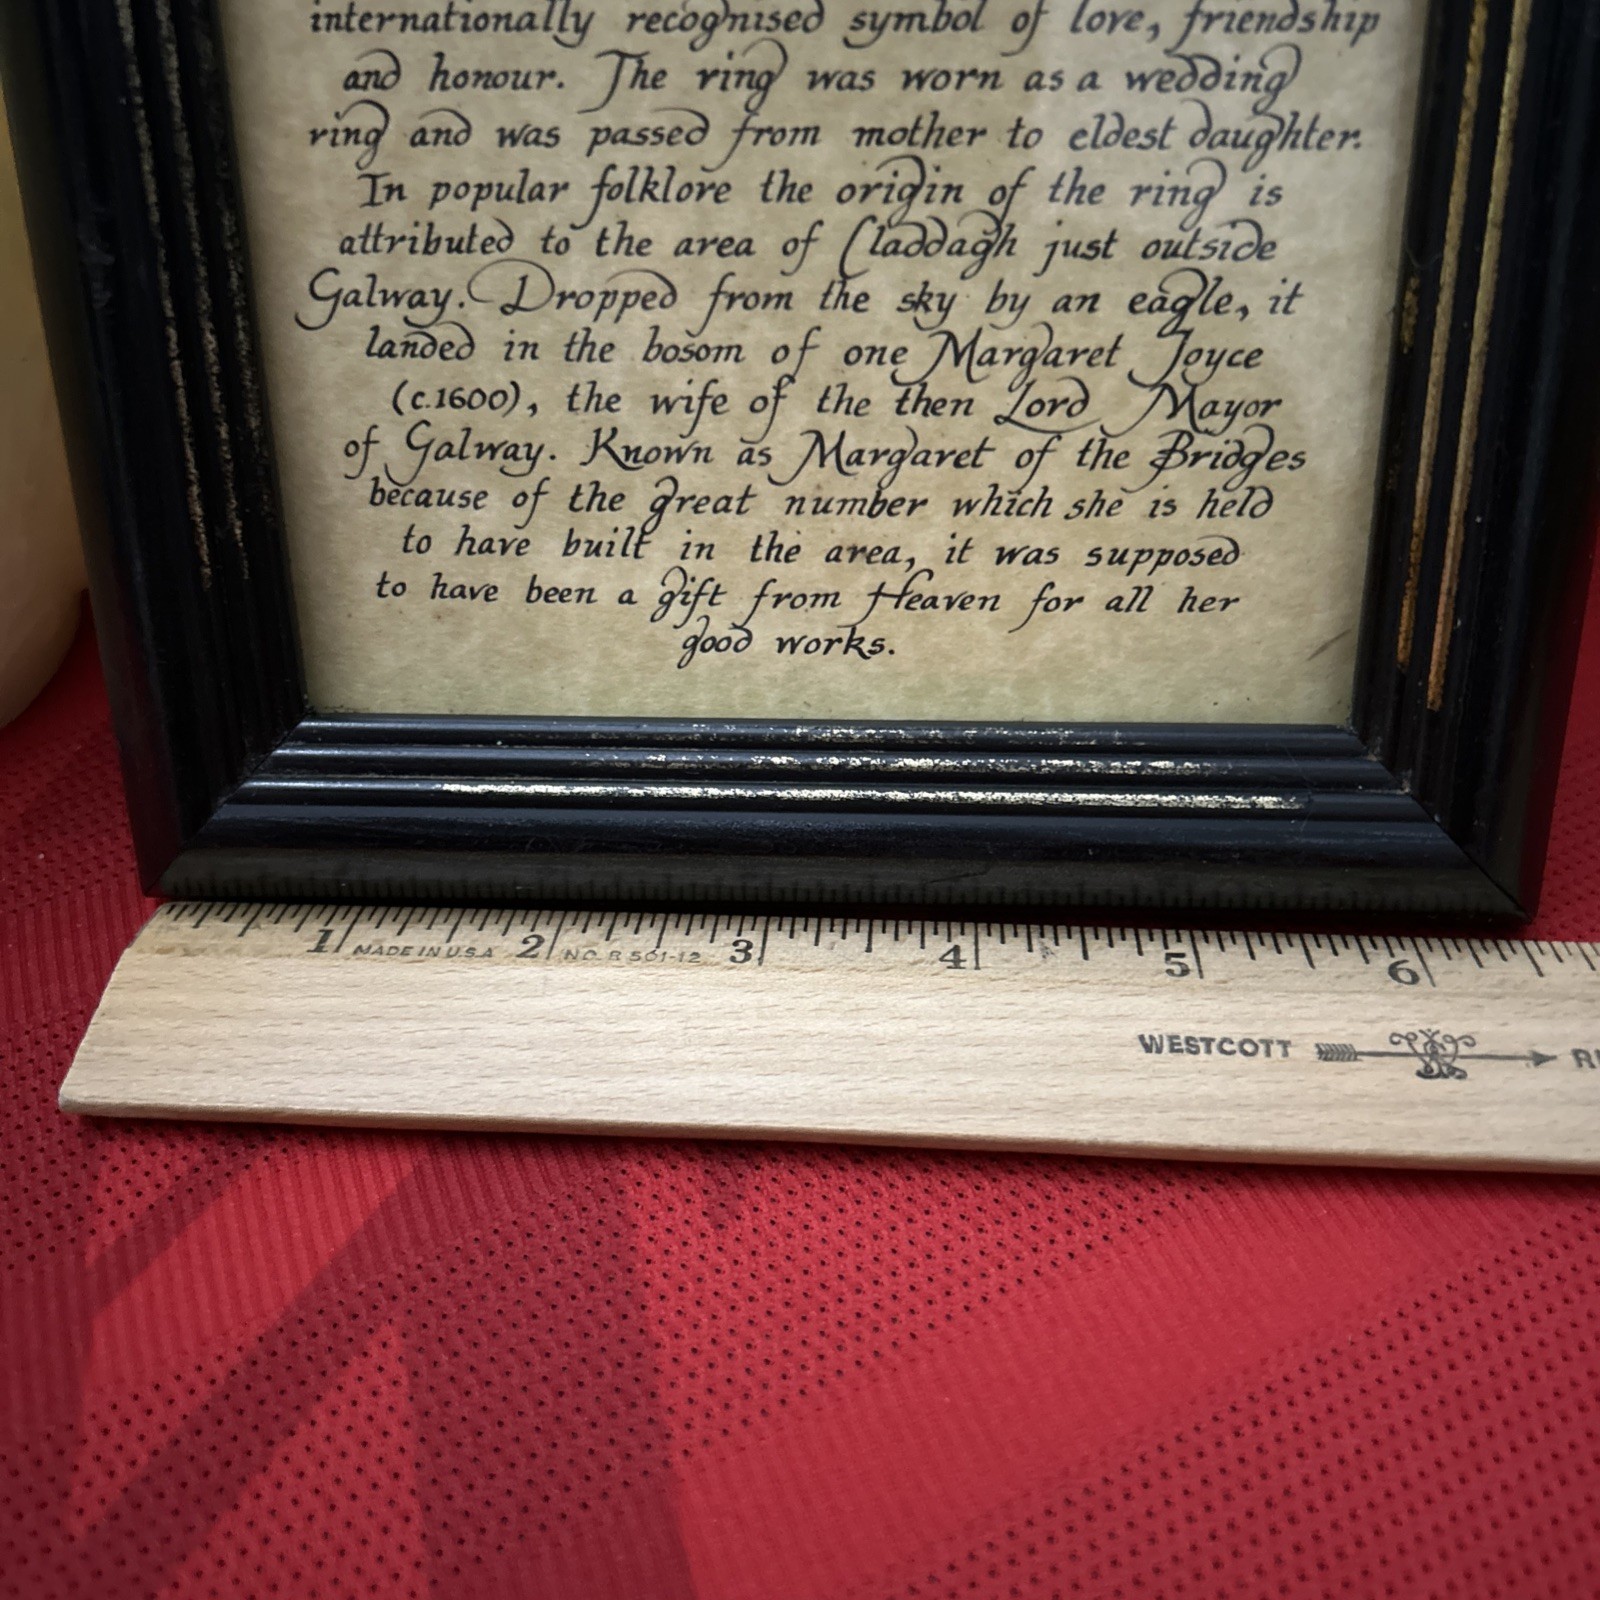 internationally recognised symbol of love, friendship
and honour. The ring was worn as a wedding
ring and was passed from mother to eldest daughter.
In popular folklore the origin of the ring is
attributed to the area of Claddagh just outside
Galway. Dropped from the sky by an eagle, it
landed in the bosom of one Margaret Joyce
(c.1600), the wife of the then Lord Mayor
of Galway. Known as Margaret of the Bridges
because of the great number which she is held
to have built in the area, it was supposed
to have been a gift from Heaven for all her
good works.
1 MADE IN U.S.A 2 NO. R 501-12 3 4 5 6
WESTCOTT